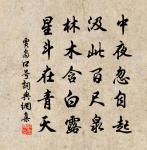 中夜忽自起
汲此百尺泉
林木含白露
星斗在青天
賈島口号詞典網集